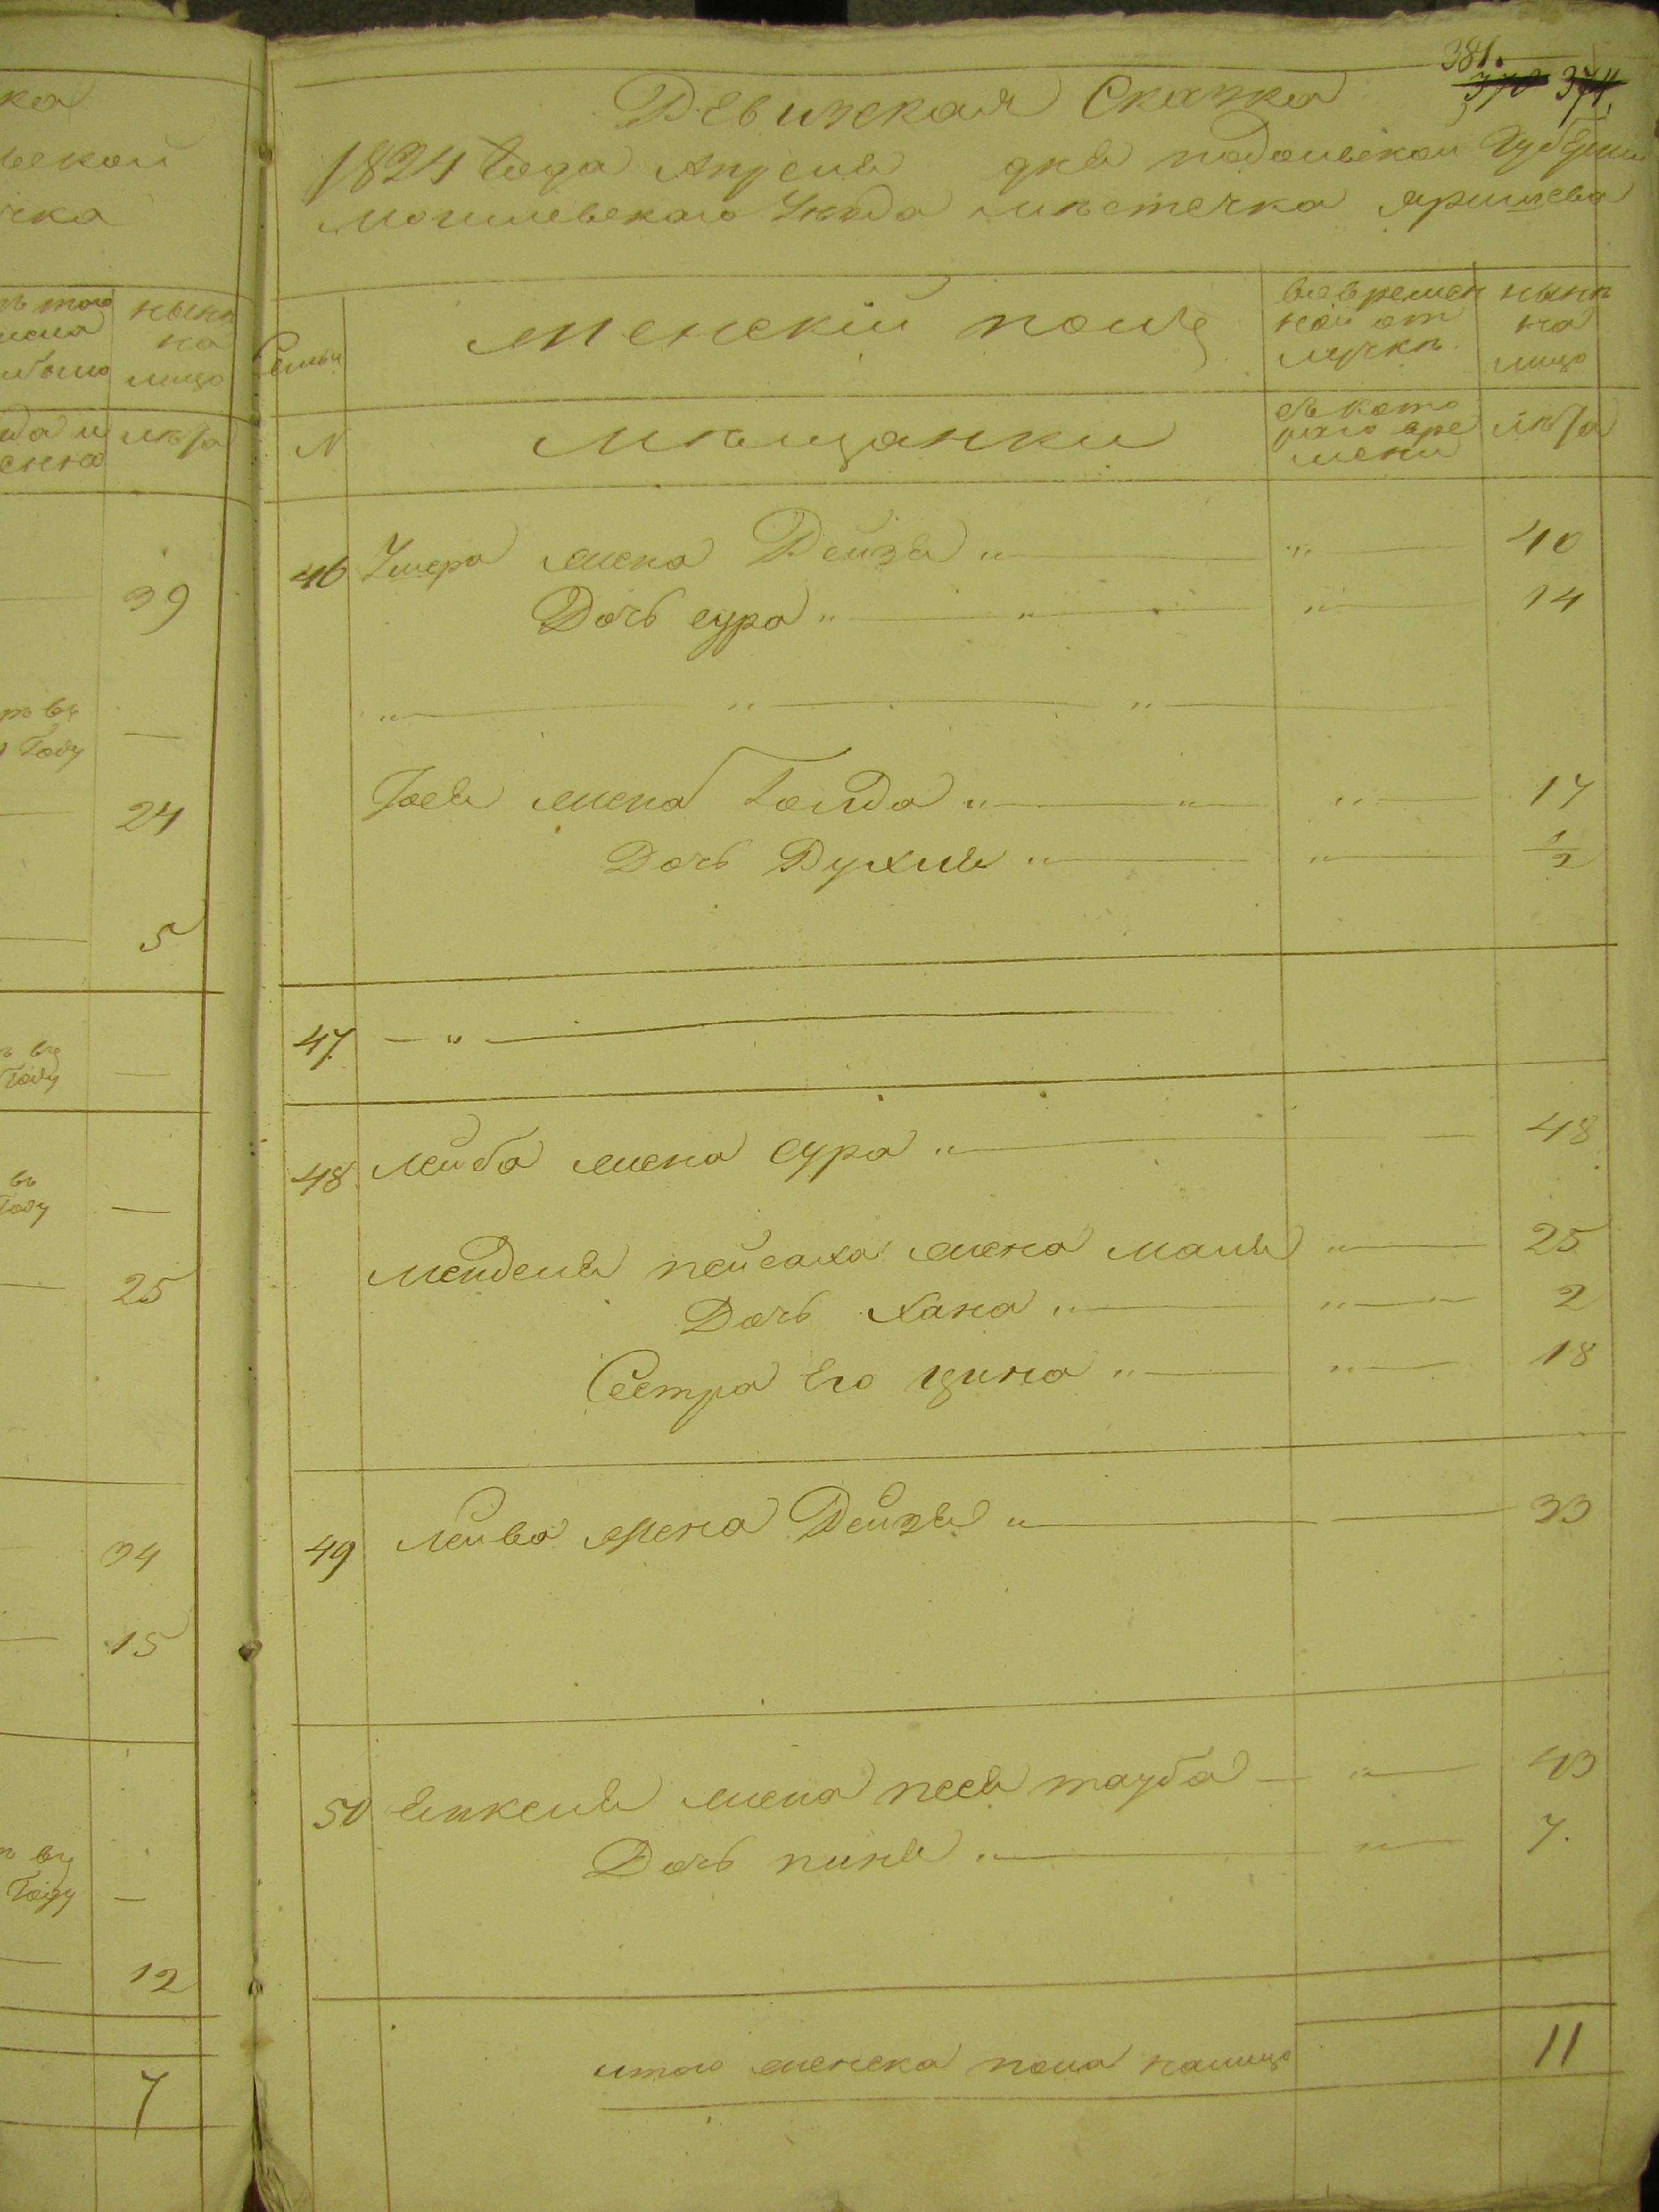 381.
370 374
Ревизская Сказка
1824 года Апреля дня подольской Губернии
могилевского уезда местечка яришева
Семьи
женский полъ
во времен
ной от
лучке
ныне
на
лицо
N
мещанки
съ кото
рого вре
мени
лета
46 жена Рейзя „ „ 40
Дочь сура „ „ „ 14
„ „ „
жена Голда „ „ „ 17
Дочь Рухля „ „ 1/2
47 „
48 Лейба жена сура „ 48
Менделя пейсаха жена маля „ 25
Дочь хана „ „ „ 2
Сестра его цина „ „ 18
49 Лейба жена Рейзя „ 33
50 Янкеля жена песя тауба „ 43
Дочь пиня „ „ 7.
итого женска пола налицо 11
ка
ьской
чка
ныне
на
лицо
лета
39
въ
Году
24
5
въ
Году
въ
Году
25
34
15
въ
Году
12
7